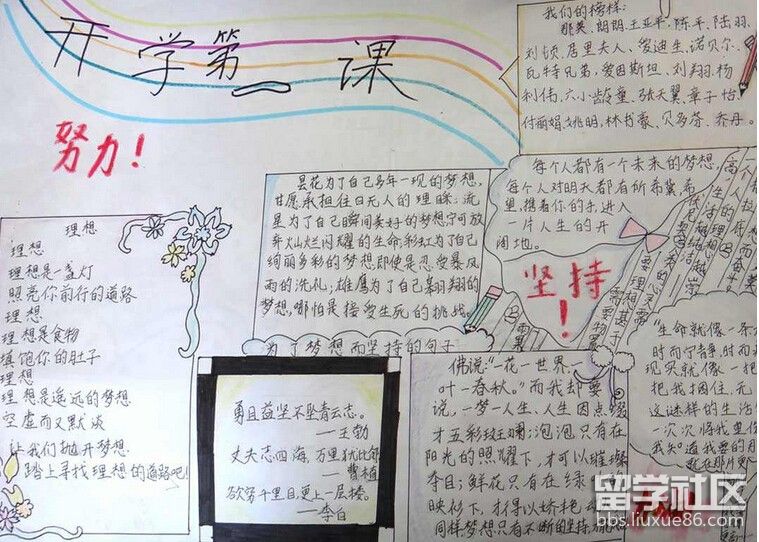 开学第一课
努力！
我们的榜样：
那英、朗朗、王亚平、陈平、陆羽、
刘顿、居里夫人、爱迪生、诺贝尔、
瓦特兄弟、爱因斯坦、刘翔、杨
利伟、六小龄童、张天翼、章子怡、
付丽娟、姚明、林书豪、贝多芬、乔丹。
理想
理想
理想是一盏灯
照亮你前行的道路
理想
理想是食物
填饱你的肚子
理想
理想是遥远的梦想
空虚而又默淡
让我们抛开梦想
踏上寻找理想的道路吧！
昙花为了自己多年一现的梦想，
甘愿承担往日无人的理睬；流
星为了自己瞬间美好的梦想宁可放
弃灿烂闪耀的生命；彩虹为了自己
绚丽多彩的梦想即使是忍受暴风
雨的洗礼；雄鹰为了自己翱翔的
梦想，哪怕是接受生死的挑战。
为了梦想而坚持的句子
勇且益坚不坠青云志。
——王勃
丈夫志四海，万里犹比邻
——曹植
欲第千里目更上一层楼。
——李白
每个人都有一个未来的梦想，
每个人对明天都有所希冀，希
里，携着你的手，进入
一片人生的开
阔地。
坚持！
佛说：“一花一世界，一
叶一春秋。”而我却要
说，一梦一人生，人生因点缀
才五彩斑斓；泡泡只有在
阳光的照耀下，才可以璀璨
夺目；鲜花只有在绿
映衬下，才得以娇艳
同样，梦想只有不断的坚持，方能
“生命就像一条
时而宁静，时而
现实就像一把
把我捆住，无
这谜样的生活
一次次将我重伤
我知道我要的
就在那片
留学社区
bbs.liuxue86.com